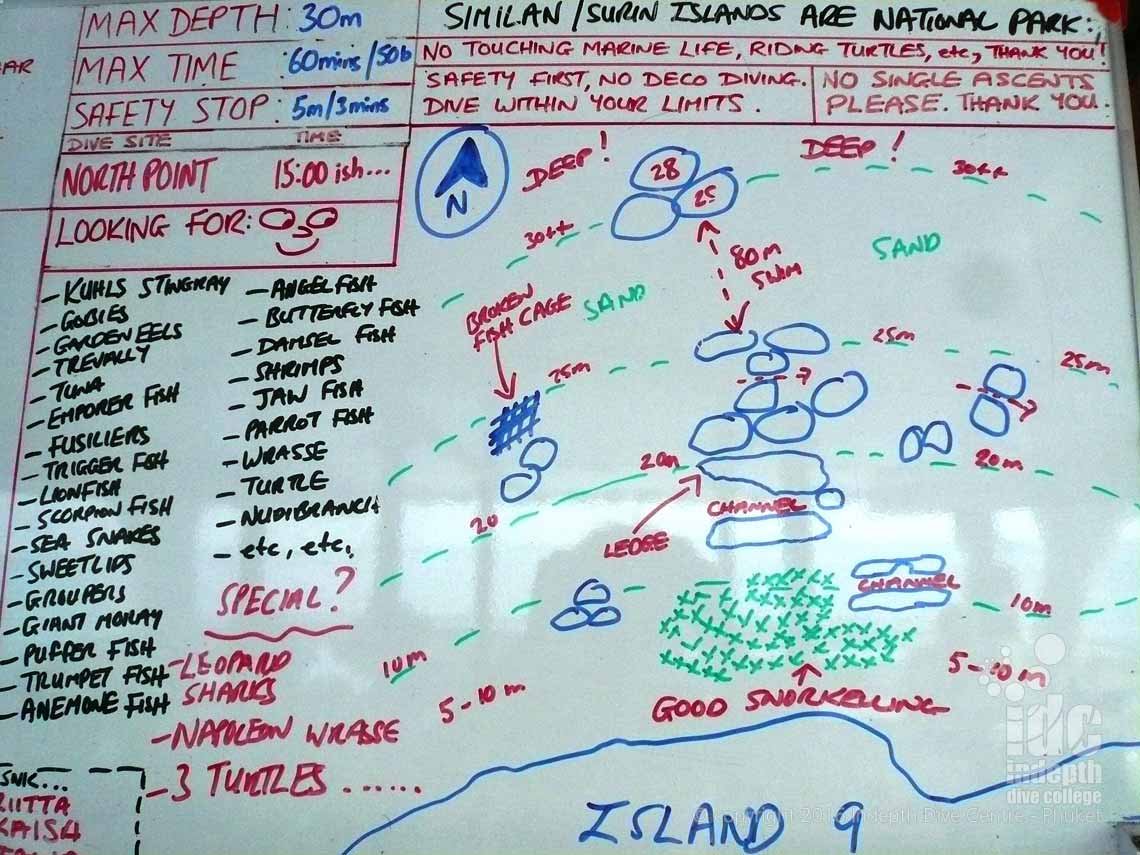 MAX DEPTH: 30m
MAX TIME : 60mins/50b
SAFETY STOP : 5m/3mins
DIVE SITE TIME
NORTH POINT 15:00 ish...
LOOKING FOR:
SIMILAN/SURIN ISLANDS ARE NATIONAL PARK:
NO TOUCHING MARINE LIFE, RIDING TURTLES, etc, THANK YOU!
SAFETY FIRST, NO DECO DIVING.
DIVE WITHIN YOUR LIMITS.
NO SINGLE ASCENTS
PLEASE. THANK YOU.
- KUHLS STINGRAY
- GOBIES
- GARDEN EELS
- TREVALLY
- TUNA
- EMPORER FISH
- FUSILIERS
- TRIGGER FISH
- LIONFISH
- SCORPION FISH
- SEA SNAKES
- SWEETLIPS
- GROUPERS
- GIANT MORAY
- PUFFER FISH
- TRUMPET FISH
- ANEMONE FISH
- ANGEL FISH
- BUTTERFLY FISH
- DAMSEL FISH
- SHRIMPS
- JAW FISH
- PARROT FISH
- WRASSE
- TURTLE
- NUDIBRANCH
- etc, etc,
SPECIAL?
- LEOPARD
SHARKS
- NAPOLEON WRASSE
- 3 TURTLES ......
N
DEEP!
28
25
DEEP!
30++
30++
80m
SWIM
SAND
SAND
BROKEN
FISH CAGE
25m
25m
25m
20m
20m
20
LEDGE
CHANNEL
CHANNEL
10m
10m
5-10m
5-10m
GOOD SNORKELLING
ISLAND 9
RIITTA
KAISA
idc
indepth
dive college
Indepth Dive Centre - Phuket